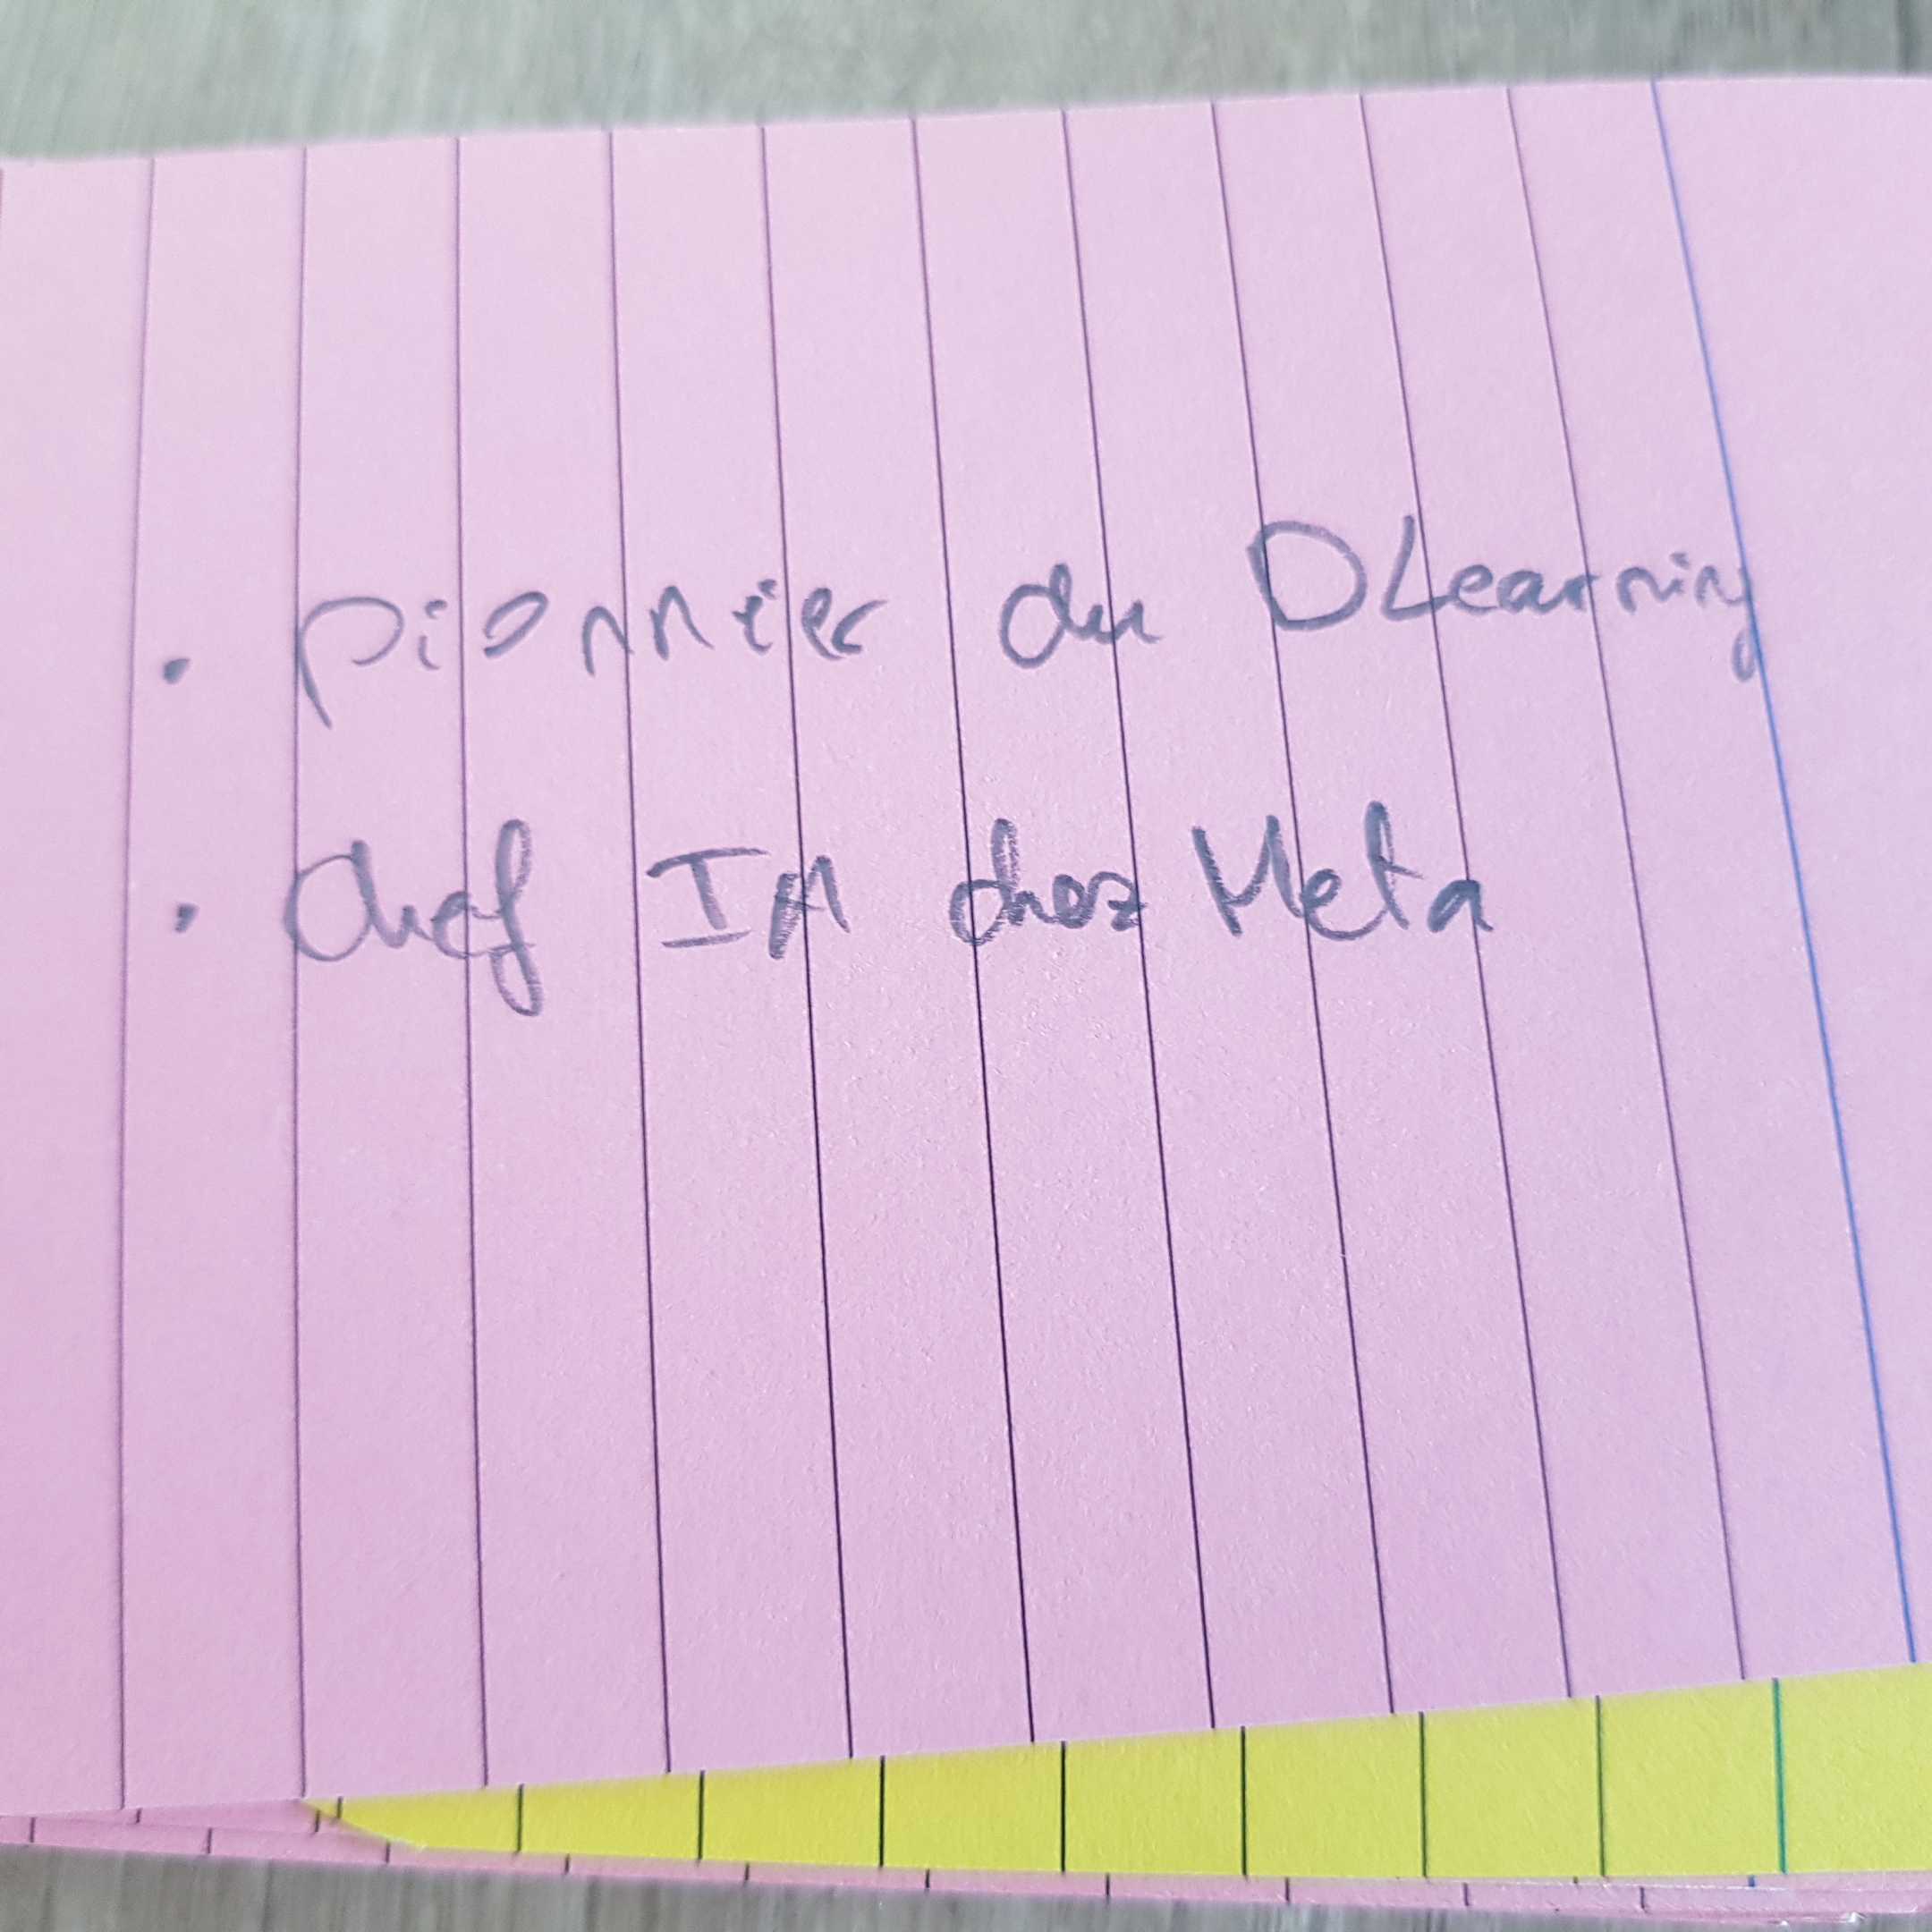 • Pionnier du DLearning
• Chef IA chez Meta